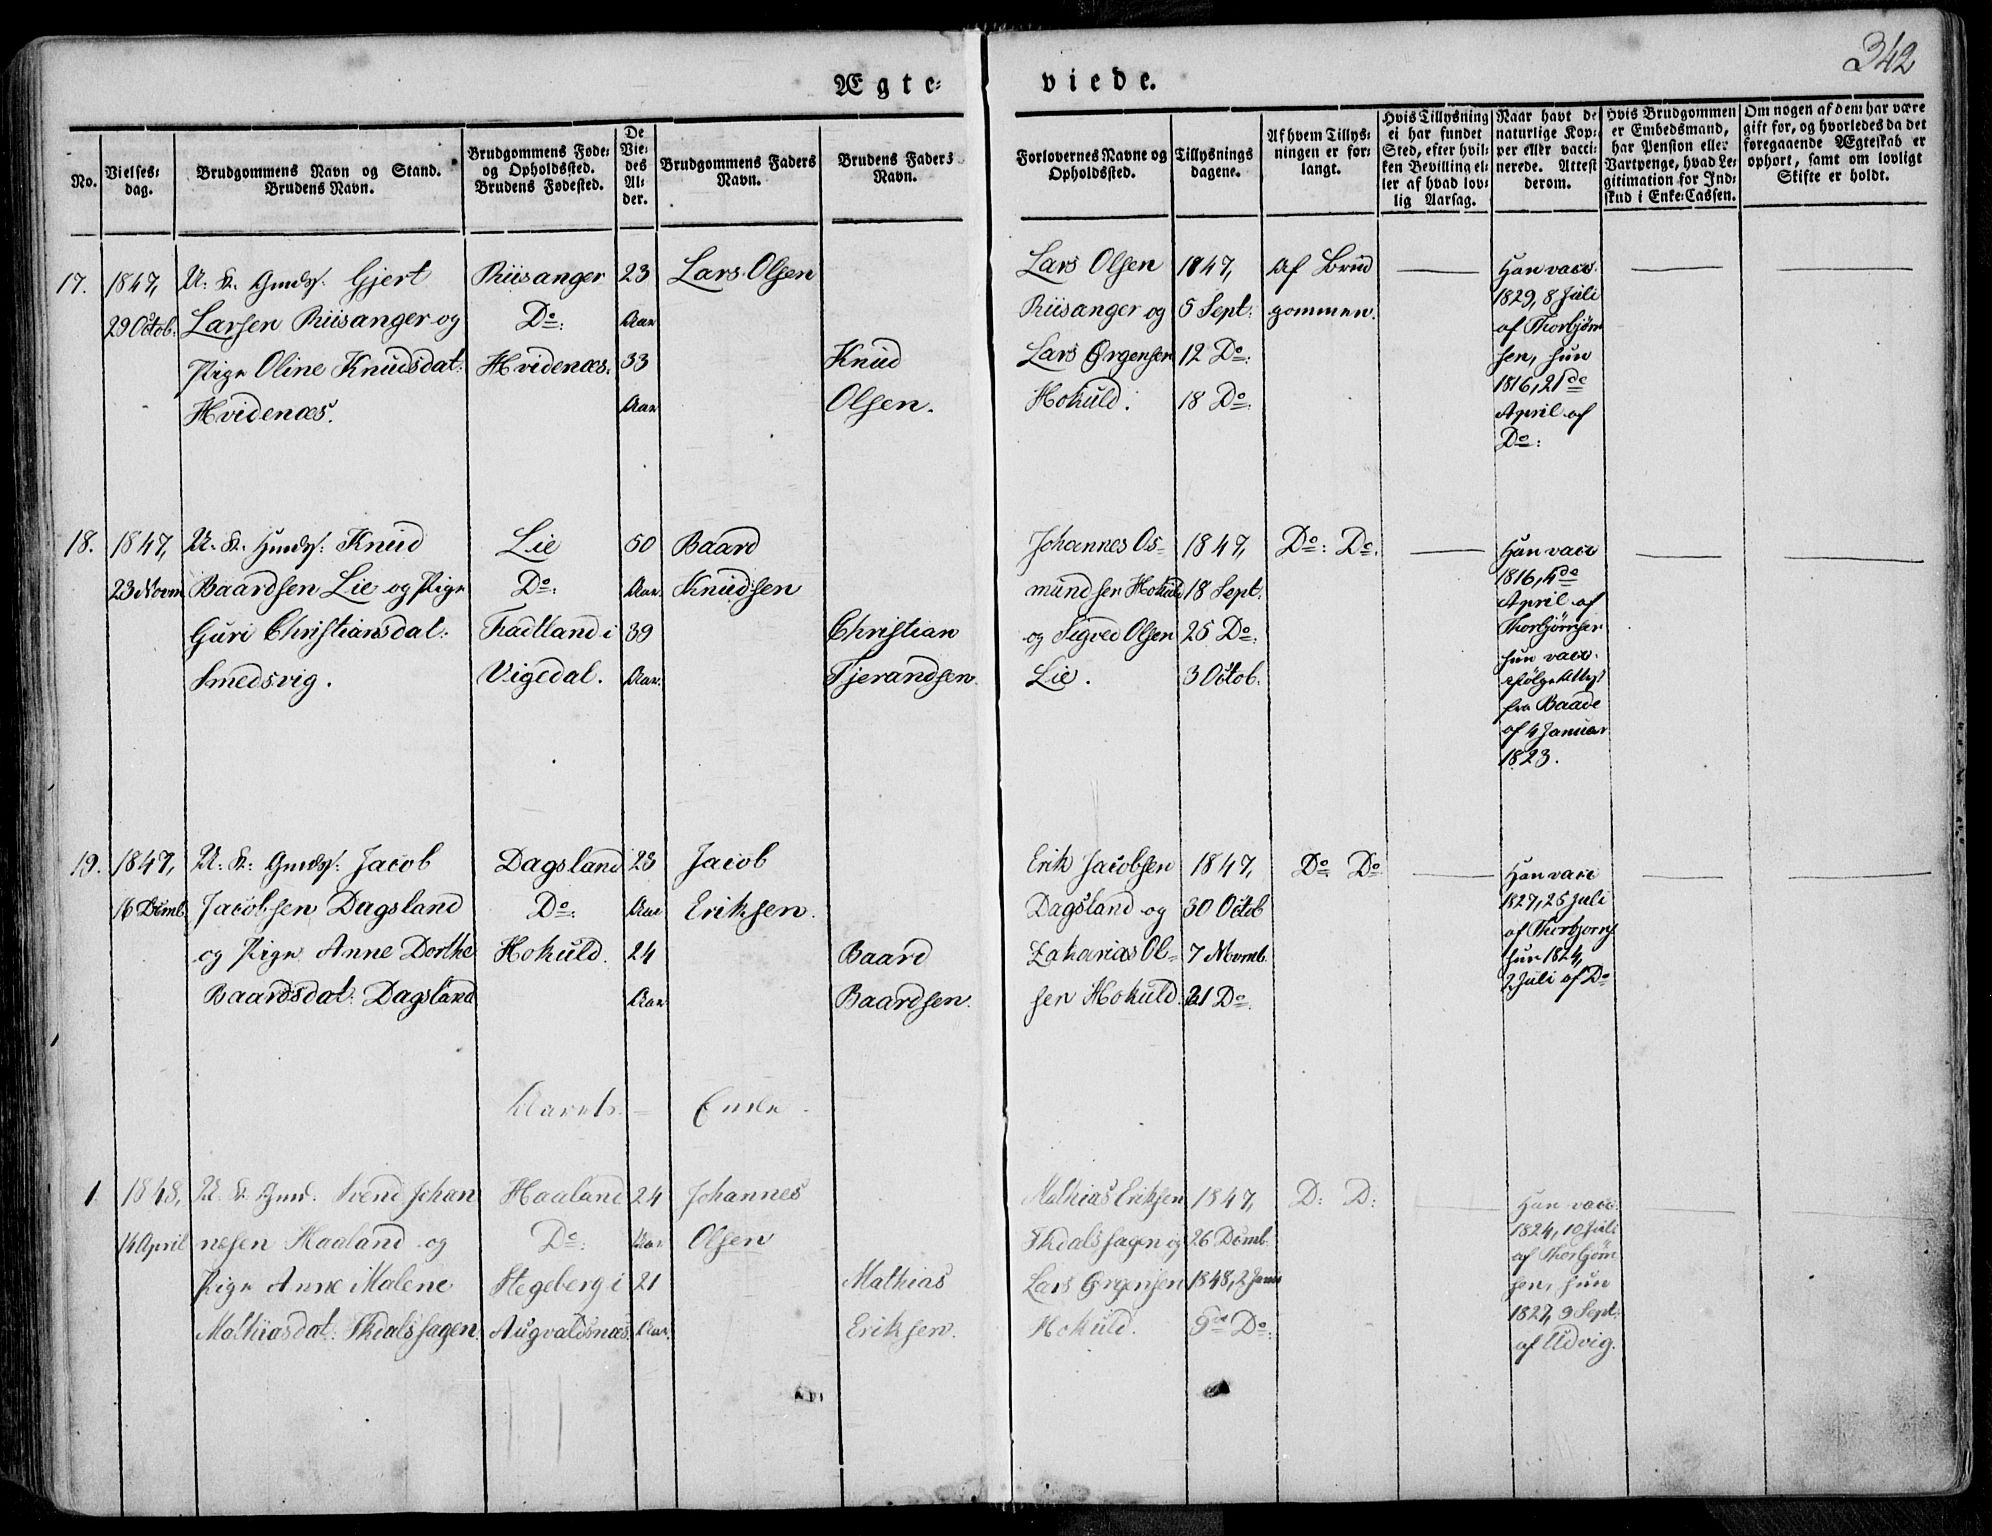 342
Ægte-
viede.
No.
Vielses-
dag.
Brudgommens Navn og Stand.
Brudens Navn.
Brudgommens Føde-
og Opholdssted.
Brudens Fødested.
De
Vie-
des
Al-
der.
Brudgommens Faders
Navn.
Brudens Faders
Navn.
Forlovernes Navne og
Opholdssted.
Tillysnings
dagene.
Af hvem Tillys-
ningen er for-
langt.
Hvis Tillysning
ei har fundet
Sted, efter hvil-
ken Bevilling el-
ler af hvad lov-
lig Aarsag.
Naar havt de
naturlige Kop-
per eller vacci-
nerede. Attest
derom.
Hvis Brudgommen
er Embedsmand,
har Pension eller
Vartpenge, hvad Le-
gitimation for Ind-
skud i Enke-Cassen.
Om nogen af dem har være
gift før, og hvorledes da det
foregaaende Ægteskab er
ophørt, samt om lovligt
Skifte er holdt.
17.
1847,
29 Octob.
U. K. Gmds: Gjert
Larsen Riisanger og
Pige Oline Knudsdat:
Hvidenæs.
Riisanger
Do:
Hvidenæs.
23
Aar
33
Aar
Lars Olsen
Knud
Olsen.
Lars Olsen
Riisanger og
Lars Ørgensen
Hokuld.
1847,
5 Sept:
12 Do:
18 Do:
Af Brud
gommen.
Han vacc.
1829, 8 Juli
af Thorbjørn
sen, hun
1816, 21de
April af
Do:
18.
1847,
23 Novm
U. K. Gmds: Knud
Baardsen Lie og Pige
Guri Christiansdat:
Smedsvig.
Lie
Do:
Tradtland i
Vigedal.
50
Aar.
39
Aar.
Baard
Knudsen
Christian
Tjerandsen.
Johannes Os-
mundsen Hokuld
og Sigved Olsen
Lie.
1847,
18 Sept:
25 Do:
3 Octob:
Do: Do:
Han vacc
1816, 4de
April af
Thorbjørnsen
hun vacc.
ifølge Attest
fra Baade
af 4 Januar
1823.
19.
1847,
16 Decmb
U. K. Gmds: Jacob
Jacobsen Dagsland
og Pige Anne Dorthe
Baardsdat: Dagsland
Dagsland
Do:
Hokuld.
23
Aar
24
Aar
Jacob
Eriksen.
Baard
Baardsen.
Erik Jacobsen
Dagsland og
Zakarias Ol-
sen Hokuld.
1847,
30 Octob
7 Novmb.
21 Do:
Do Do
Han vacc
1827, 25 Juli
af Thorbjørns
hun 1824,
2 Juli af Do
Aarets Ende.
1
1848,
14 April
U. K. Gmd. Svend Johan
nesen Haaland og
Pige Anne Malene
Mathiasdat: Skdalshagen.
Haaland
Do:
Stegeberg i
Augvaldsnæs.
24
Aar
21
Aar.
Johannes
Olsen
Mathias
Eriksen.
Mathias Eriksen
Skdalshagen og
Lars Ørgensen
Hokuld.
1847,
26 Decmb.
1848, 2 Janu
9de Do:
D: D:
Han vacc.
1824, 10 Juli
af Thorbjørn
sen, hun
1827, 9 Sept:
af Udvig.